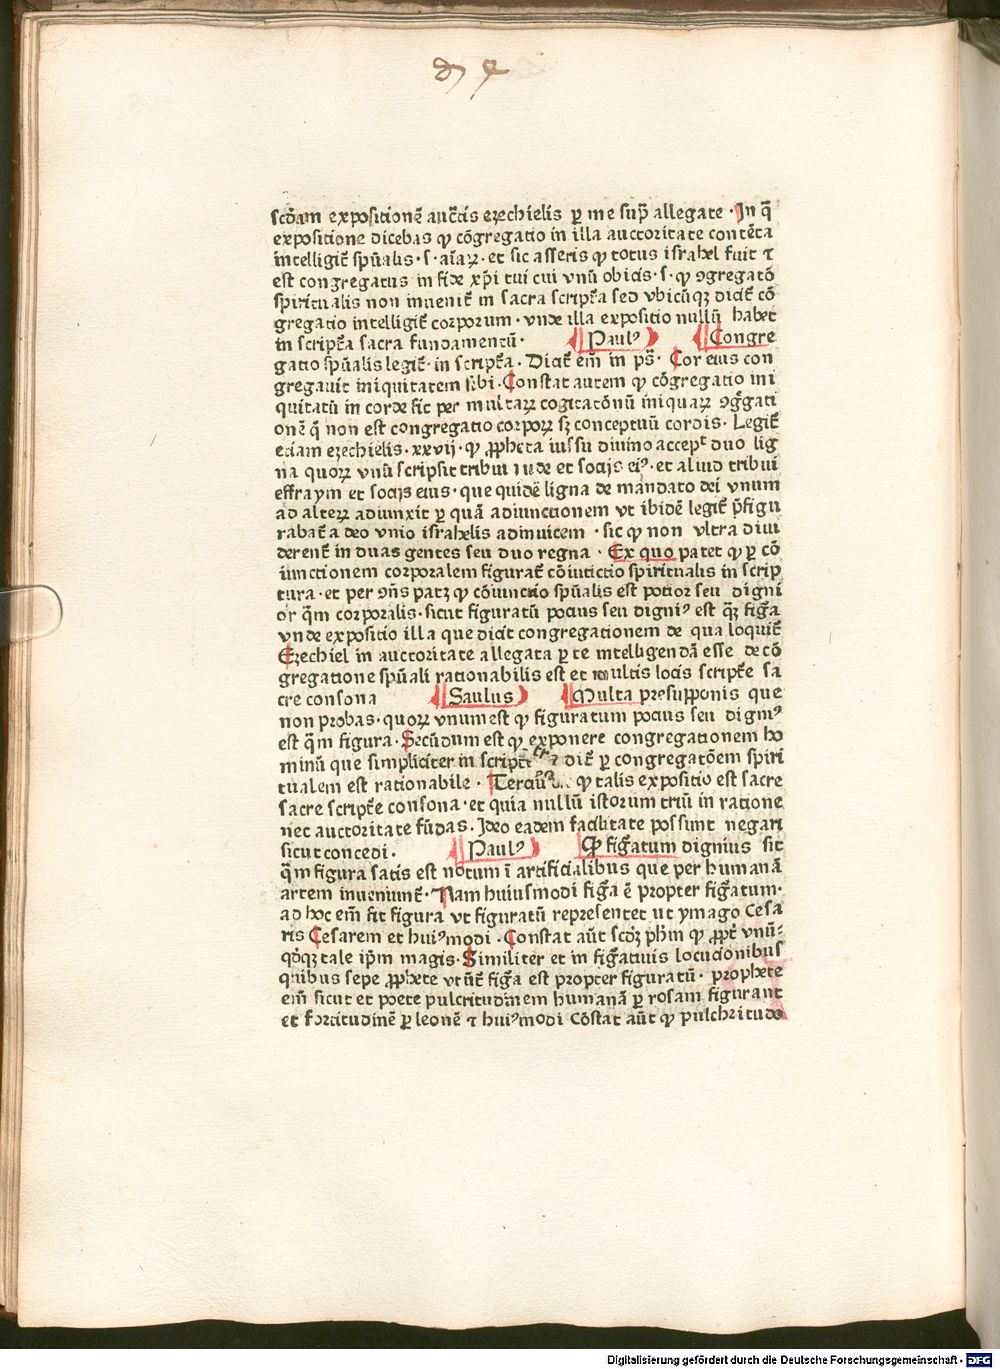 scḋam expositionē auctīs ezechielis ꝑ me sup̄ allegate · In q̄
expositione dicebas ꝙ cōgregatio in illa auctoritate contēta
intelligit̄ spūalis · s · aīaꝝ · et sic asseris ꝙ totus israhel fuit ⁊
est congregatus in fide xp̄i tui cui vnū obicis · s · ꝙ ꝯgregatō
spiritualis non inuenit̄ in sacra scriptā sed vbicūqꝫ dicit̄ cō
gregatio intelligit̄ corporum · vnde illa expositio nullū habet
in scriptā sacra fundamentū · Paulꝰ Congre
gatio spūalis legit̄ · in scriptā . Dicit̄ em̄ in ps̄ · Cor eius con
gregauit iniquitatem sibi · Constat autem ꝙ cōgregatio ini
quitatū in corde fit per multaꝝ cogitatōnū iniquaꝝ ꝯgḡati
onē q̄ non est congregatio corpoꝝ sꝫ conceptuū cordis · Legit̄
etiam ezechielis · xxvij · ꝙ ꝓpheta iussu diuino accepᵗ duo lig
na quoꝝ vnū scripsit tribui iude et socijs eiꝰ · et aliud tribui
effraym et socijs eius · que quidē ligna de mandato dei vnum
ad alteꝝ adiunxit ꝑ quā adiunctionem vt ibidē legit̄ p̄figu
rabat̄ a deo vnio israhelis adinuicem · sic ꝙ non vltra diui
derent̄ in duas gentes seu duo regna · Ex quo patet ꝙ ꝑ cō
iunctionem corporalem figurat̄ cōiūctio spiritualis in scrip
tura · et per ꝯn̄s patꝫ ꝙ cōiunctio spūalis est potior seu digni
or q̄m corporalis · sicut figuratū potius seu digniꝰ est q̄ꝫ fiḡa
vnde expositio illa que dicit congregationem de qua loquit̄
Ezechiel in auctoritate allegata ꝑ te intelligendā esse de cō
gregatione spūali rationabilis est et multis locis scriptē sa
cre consona Saulus Multa presupponis que
non probas · quoꝝ vnum est ꝙ figuratum potius seu digniꝰ
est q̄m figura · Secūdum est ꝙ exponere congregationem ho
minū que simpliciter in scriptꝭ dic̄t ꝑ congregatōem spiri
tualem est rationabile · Terciū ꝙ talis expositio est sacre
sacre scriptē consona · et quia nullū istorum triū in ratione
nec auctoritate fūdas . Ideo eadem facilitate possunt negari
sicut concedi . Paulꝰ Ꝙ fiḡatum dignius sit
q̄m figura satis est notum ī artificialibus que per humanā
artem inueniunt̄ · Nam huiusmodi fiḡa ē propter fiḡatum ·
ad hoc em̄ fit figura vt figuratū representet ut ymago Cesa
ris Cesarem et huiꝰmodi . Constat aūt scḋꝫ ph̄m ꝙ ꝓpt̄ vnū-
qḋqꝫ tale ip̄m magis · Similiter et in fiḡatiuis locucionibus
quibus sepe ꝓphete vtūt̄ fiḡa est propter figuratū · prophete
em̄ sicut et poete pulcritudinem humanā ꝑ rosam figurant
et fortitudinē ꝑ leonē ⁊ huiꝰmodi Cōstat aūt ꝙ pulchritudo
Digitalisierung gefördert durch die Deutsche Forschungsgemeinschaft - DFG